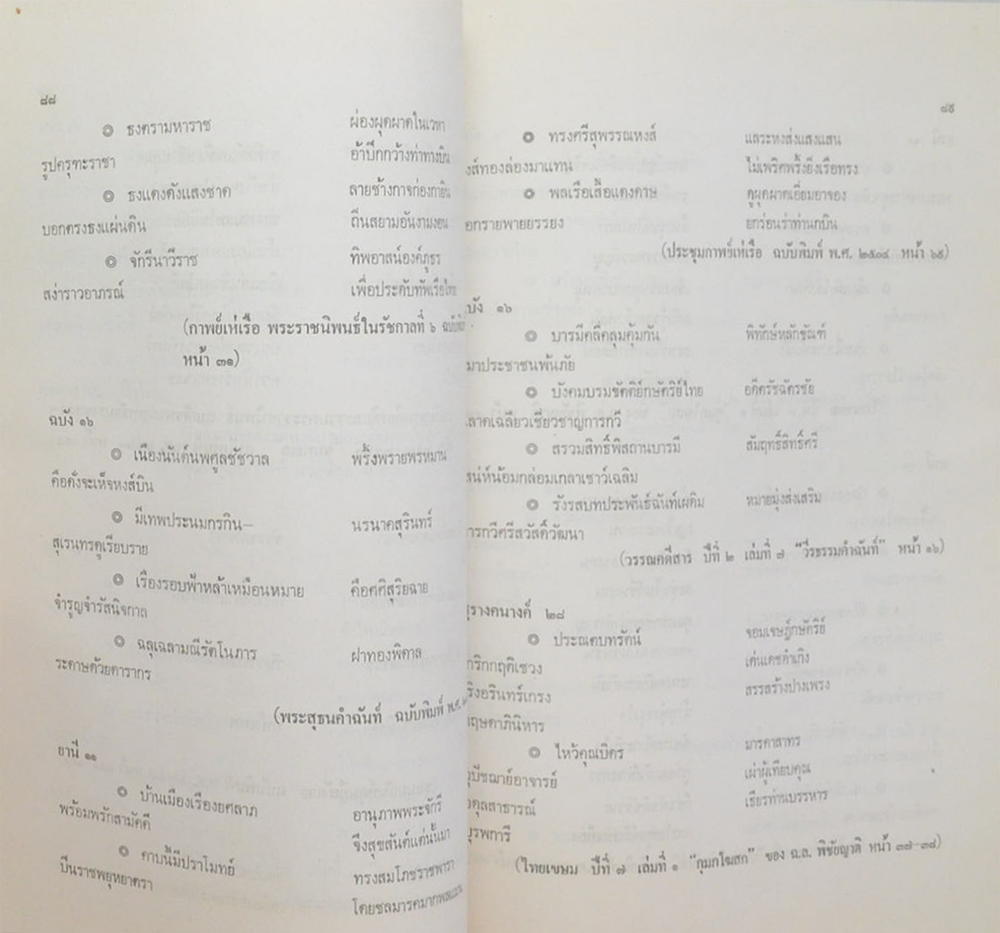 ๘๘
๏ ธงตรามหาราช ผ่องผุดผาดในเวหา
รูปครุฑะราชา อ้าปีกกว้างท่าทางบิน
๏ ธงแดงดังแสงชาด ลายช้างกาจก่องกายิน
บอกตรงธงแผ่นดิน ถิ่นสยามอันงามงอน
๏ จักรีนาวีราช ทิพอาสน์องค์ภูธร
สง่าราวอาภรณ์ เพื่อประดับทัพเรือไทย
(กาพย์เห่เรือ พระราชนิพนธ์ในรัชกาลที่ ๖
หน้า ๓๑)
ฉบัง ๑๖
๏ เนืองนันต์นพศูลชัชวาล พริ้งพรายพรหมาน
คือดังจะเห็จหงส์บิน
๏ มีเทพประนมกรกิน— นรนาคสุรินทร์
สุเรนทรดูเรียบราย
๏ เรืองรอบฟ้าหล้าเหมือนหมาย คือศศิสุริยฉาย
จำรูญจำรัสนิจกาล
๏ ฉลุเฉลามณีรัตโนภาร ฝาทองพิศาล
ระดาษด้วยดารากร
(พระสุธนคำฉันท์ ฉบับพิมพ์ พ.ศ.
ยานี ๑๑
๏ บ้านเมืองเรืองยศลาภ อานุภาพพระจักรี
พร้อมพรักสามัคคี จึงสุขสันต์แต่นั้นมา
๏ คาบนี้มีปราโมทย์ ทรงสมโภชราชพารา
ปิ่นราชพยุหยาตรา โดยชลมารค
๘๙
๏ ทรงศรีสุพรรณหงส์ แลระหงส่งแสงแสน
งส์ทองล่องมาแทน ไม่เพริศพริ้งยิ่งเรือทรง
๏ พลเรือเสื้อแดงดาษ ดูผุดผาดเอี่ยมอาจอง
อกรายพายยรรยง ยกร่อนร่าท่านกบิน
(ประชุมกาพย์เห่เรือ ฉบับพิมพ์ พ.ศ. ๒๕๐๔ หน้า ๖๙)
บัง ๑๖
๏ บารมีคลี่คลุมคุ้มกัน พิทักษ์หลักขัณฑ์
มาประชาชนพ้นภัย
๏ บังคมบรมขัตติย์กษัตริย์ไทย อดีตรัชฉัตรชัย
ลาดเฉลียวเชี่ยวชาญการกวี
๏ สรวมสิทธิ์พิสถานบารมี สัมฤทธิ์สิทธิ์ศรี
สน่ห์น้อมกล่อมเกลาเชาว์เฉลิม
๏ รังรสบทประพันธ์ฉันท์เผดิม หมายมุ่งส่งเสริม
ารกวีศรีสวัสดิ์วัฒนา
(วรรณคดีสาร ปีที่ ๒ เล่มที่ ๗ "วีรธรรมคำฉันท์" หน้า ๑๖)
สุรางคนางค์ ๒๘
๏ ประณตบทรัตน์ จอมเจษฎ์กษัตริย์
กริกกฤติเชวง เด่นเดชดำเกิง
ริงอรินทร์เกรง สรรสร้างปางเพรง
ฤษดาภินิหาร
๏ ไหว้คุณบิดร มารดาสาทร
อุปัชฌาย์อาจารย์ เผ่าผู้เทียบคุณ
วดุลสาธารณ์ เธียรท่านบรรหาร
บุรพการี
(ไทยเขษม ปีที่ ๗ เล่มที่ ๑ "กุมกโฆสก" ของ ฉ.ล. พิชัยญาติ หน้า ๓๗–๓๘)